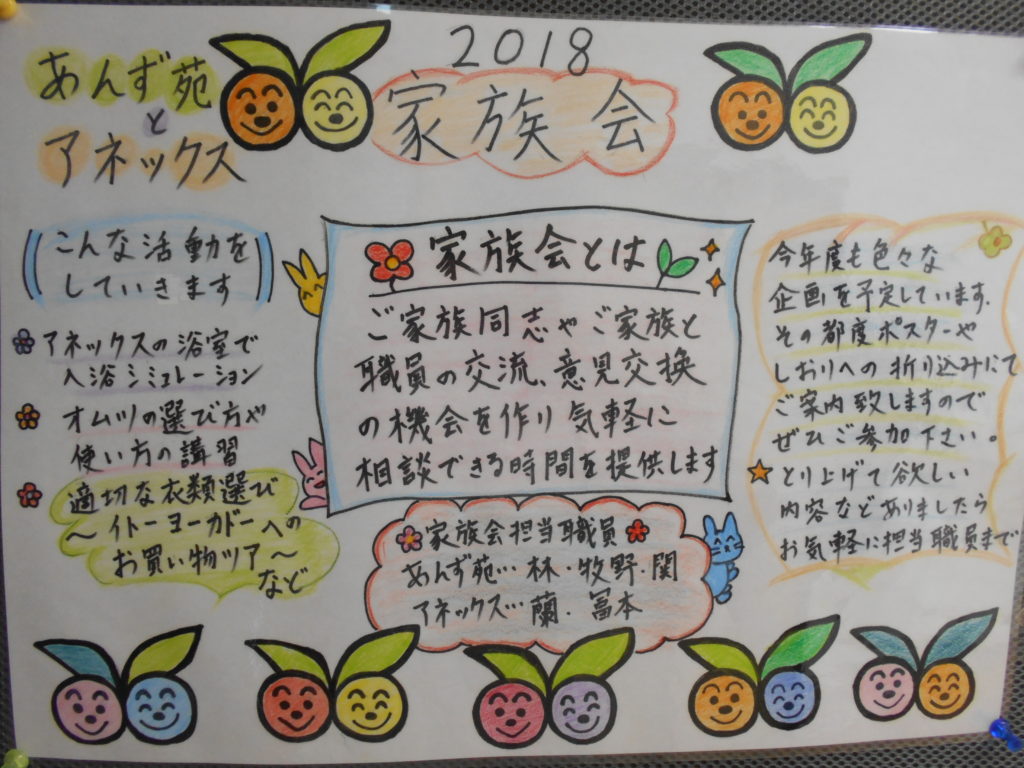 あんず苑
と
アネックス
2018
家族会
こんな活動を
していきます
アネックスの浴室で
入浴シミュレーション
オムツの選び方や
使い方の講習
適切な衣類選び
～イトーヨーカドーへの
お買い物ツアー～
など
家族会とは
ご家族同志やご家族と
職員の交流、意見交換
の機会を作り気軽に
相談できる時間を提供します
家族会担当職員
あんず苑…林・牧野・関
アネックス…蘭・冨本
今年度も色々な
企画を予定しています.
その都度ポスターや
しおりへの折り込みにて
ご案内致しますので
ぜひご参加下さい。
とり上げて欲しい
内容などありましたら
お気軽に担当職員まで